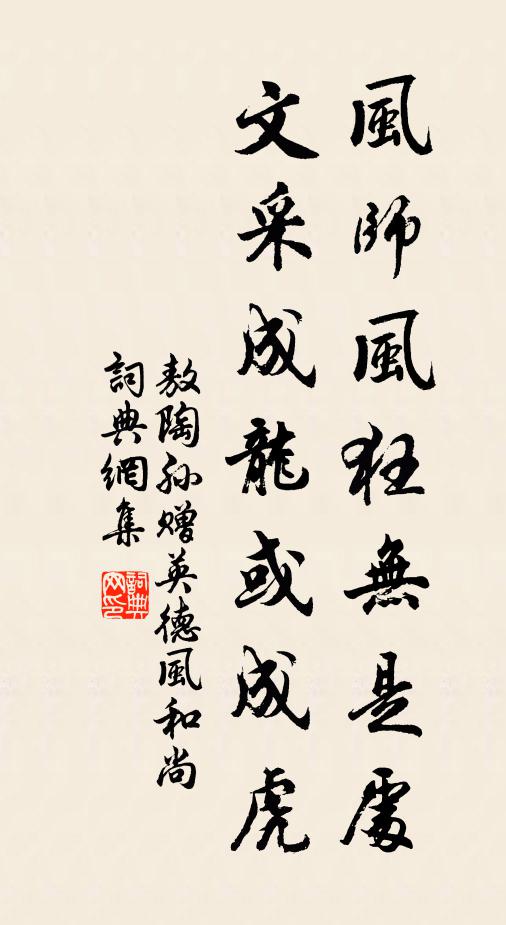 風師風狂無是處
文采成龍或成虎
敖陶孙贈英德風和尚
詞典網集
詞典
网印